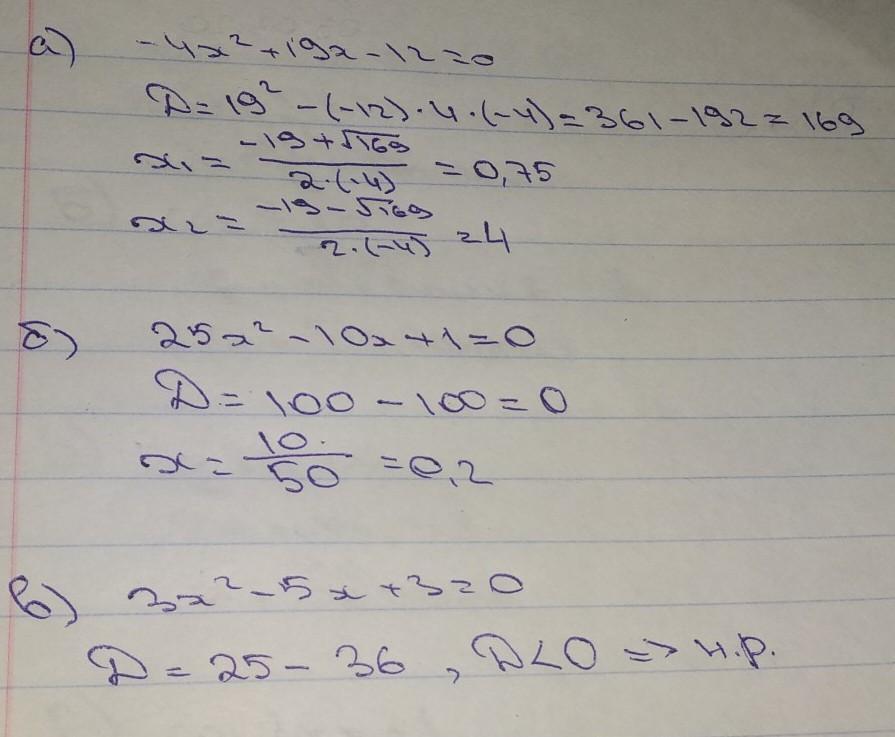 а) -4x² + 19x - 12 = 0
D = 19² - (-12) · 4 · (-4) = 361 - 192 = 169
x₁ = (-19 + √169) / (2 · (-4)) = 0,75
x₂ = (-19 - √169) / (2 · (-4)) = 4
б) 25x² - 10x + 1 = 0
D = 100 - 100 = 0
x = 10 / 50 = 0,2
в) 3x² - 5x + 3 = 0
D = 25 - 36 , D < 0 => н.р.